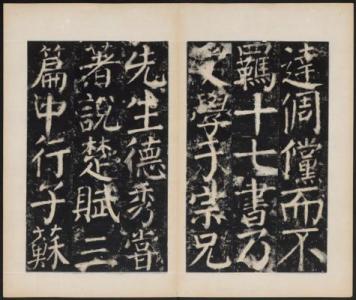 達倜儻而不
羈十七書乃
學于宗兄
先生德秀嘗
著說楚賦三
篇中行子蘇